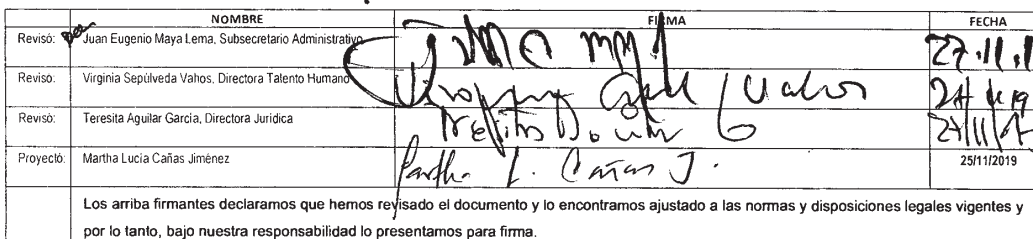 NOMBRE FIRMA FECHA
Revisó: Juan Eugenio Maya Lema, Subsecretario Administrativo 27.11.19
Revisó: Virginia Sepúlveda Vahos, Directora Talento Humano Vahos
Revisó: Teresita Aguilar García, Directora Jurídica
Proyectó: Martha Lucía Cañas Jiménez Martha L. Cañas J. 25/11/2019
Los arriba firmantes declaramos que hemos revisado el documento y lo encontramos ajustado a las normas y disposiciones legales vigentes y
por lo tanto, bajo nuestra responsabilidad lo presentamos para firma.